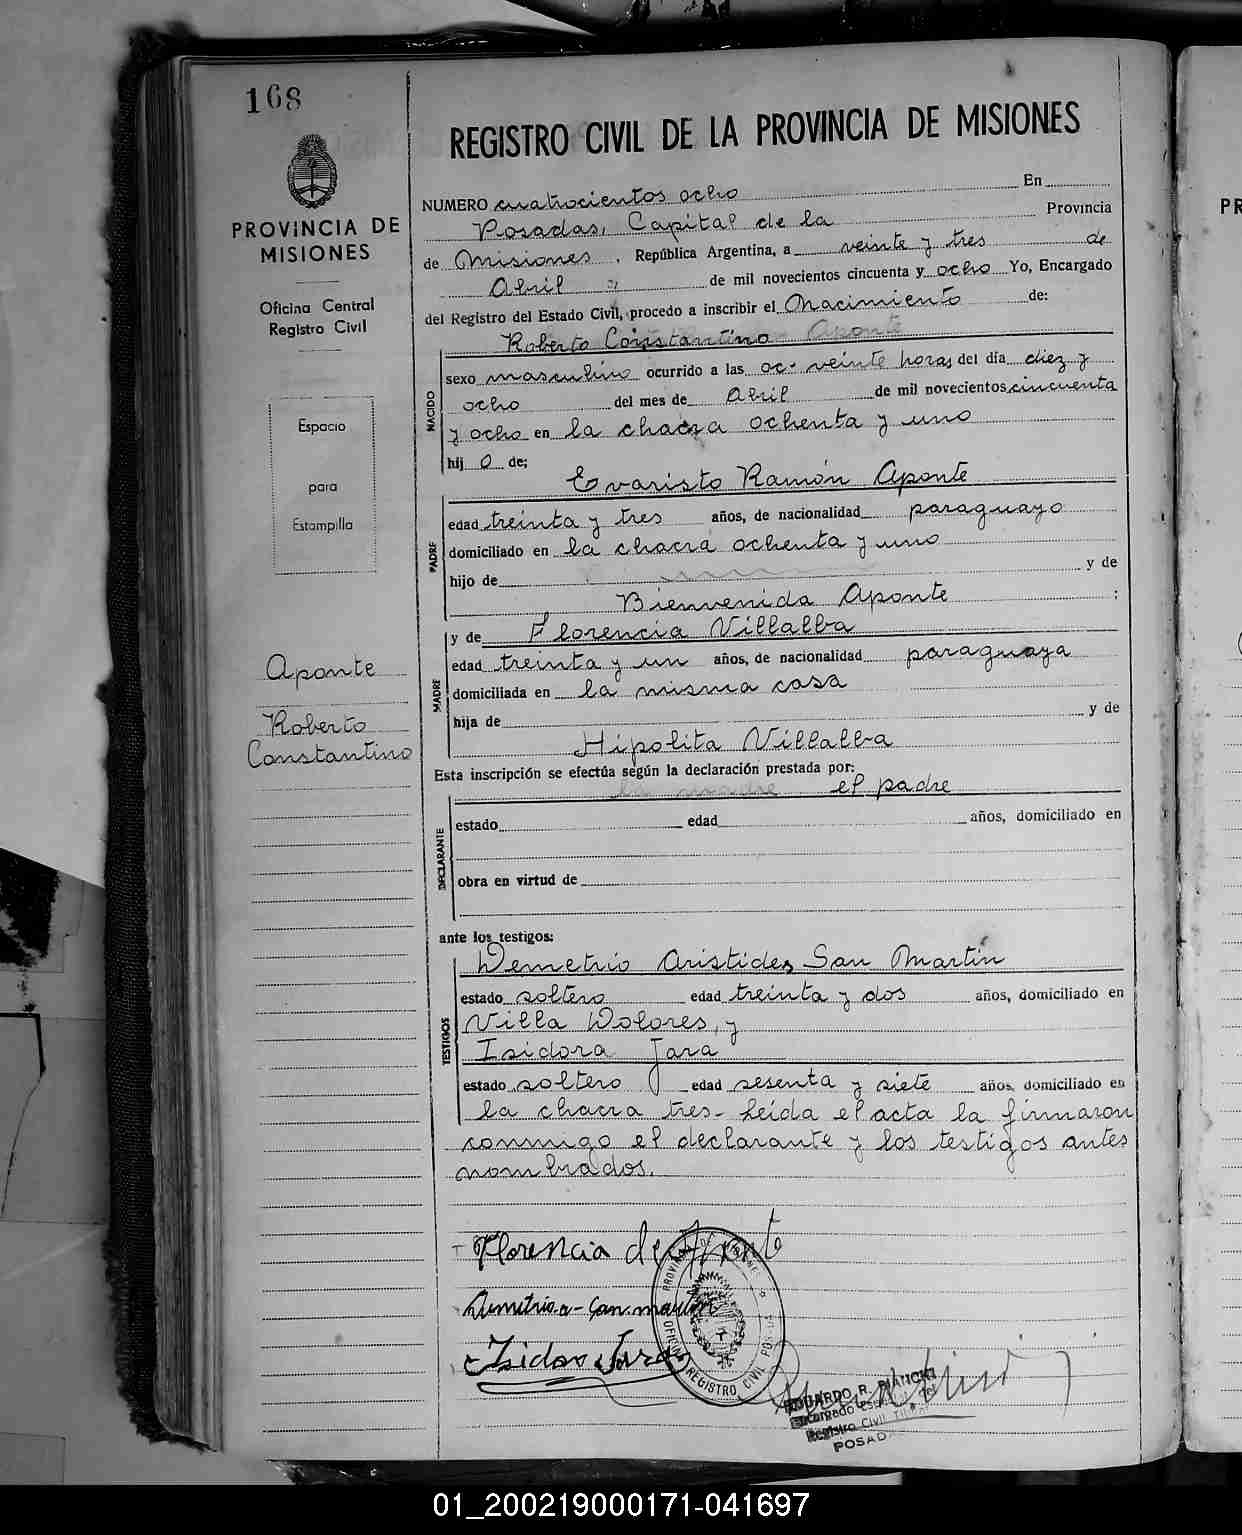 168
PROVINCIA DE
MISIONES
Oficina Central
Registro Civil
Espacio
para
Estampilla
Aponte
Roberto
Constantino
REGISTRO CIVIL DE LA PROVINCIA DE MISIONES
NUMERO cuatrocientos ocho En
Posadas, Capital de la Provincia
de Misiones, República Argentina, a veinte y tres de
Abril de mil novecientos cincuenta y ocho Yo, Encargado
del Registro del Estado Civil, procedo a inscribir el Nacimiento de:
Roberto Constantino Aponte
NACIDO
sexo masculino ocurrido a las veinte horas del día diez y
ocho del mes de Abril de mil novecientos cincuenta
y ocho en la chacra ochenta y uno
hij o de;
Evaristo Ramón Aponte
PADRE
edad treinta y tres años, de nacionalidad paraguayo
domiciliado en la chacra ochenta y uno
hijo de y de
Bienvenida Aponte ;
y de Florencia Villalba
MADRE
edad treinta y un años, de nacionalidad paraguaya
domiciliada en la misma casa
hija de y de
Hipolita Villalba
Esta inscripción se efectúa según la declaración prestada por:
la madre el padre
DECLARANTE
estado edad años, domiciliado en
obra en virtud de
ante los testigos:
Demetrio Aristides San Martin
TESTIGOS
estado soltero edad treinta y dos años, domiciliado en
Villa Dolores, y
Isidora Jara
estado soltero edad sesenta y siete años, domiciliado en
la chacra tres- Leída el acta la firmaron
conmigo el declarante y los testigos antes
nombrados.
Florencia de Aponte
Demetrio a- San martin
Isidora Jara
PROVINCIA DE MISIONES
OFICINA REGISTRO CIVIL POSADAS
EDUARDO R. BIANCHI
Encargado
Registro Civil
POSADAS
PR
01_200219000171-041697